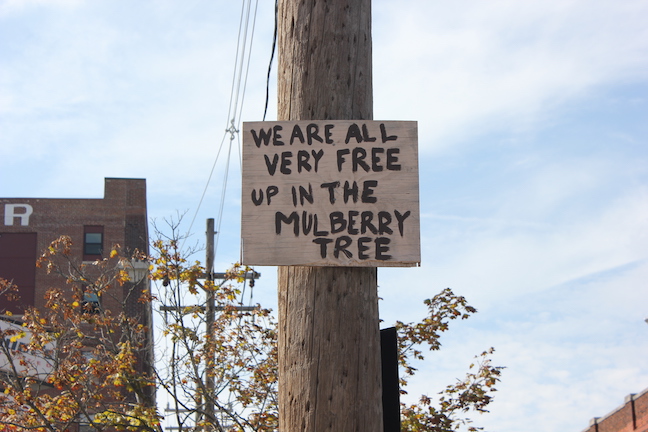 WE ARE ALL
VERY FREE
UP IN THE
MULBERRY
TREE
R